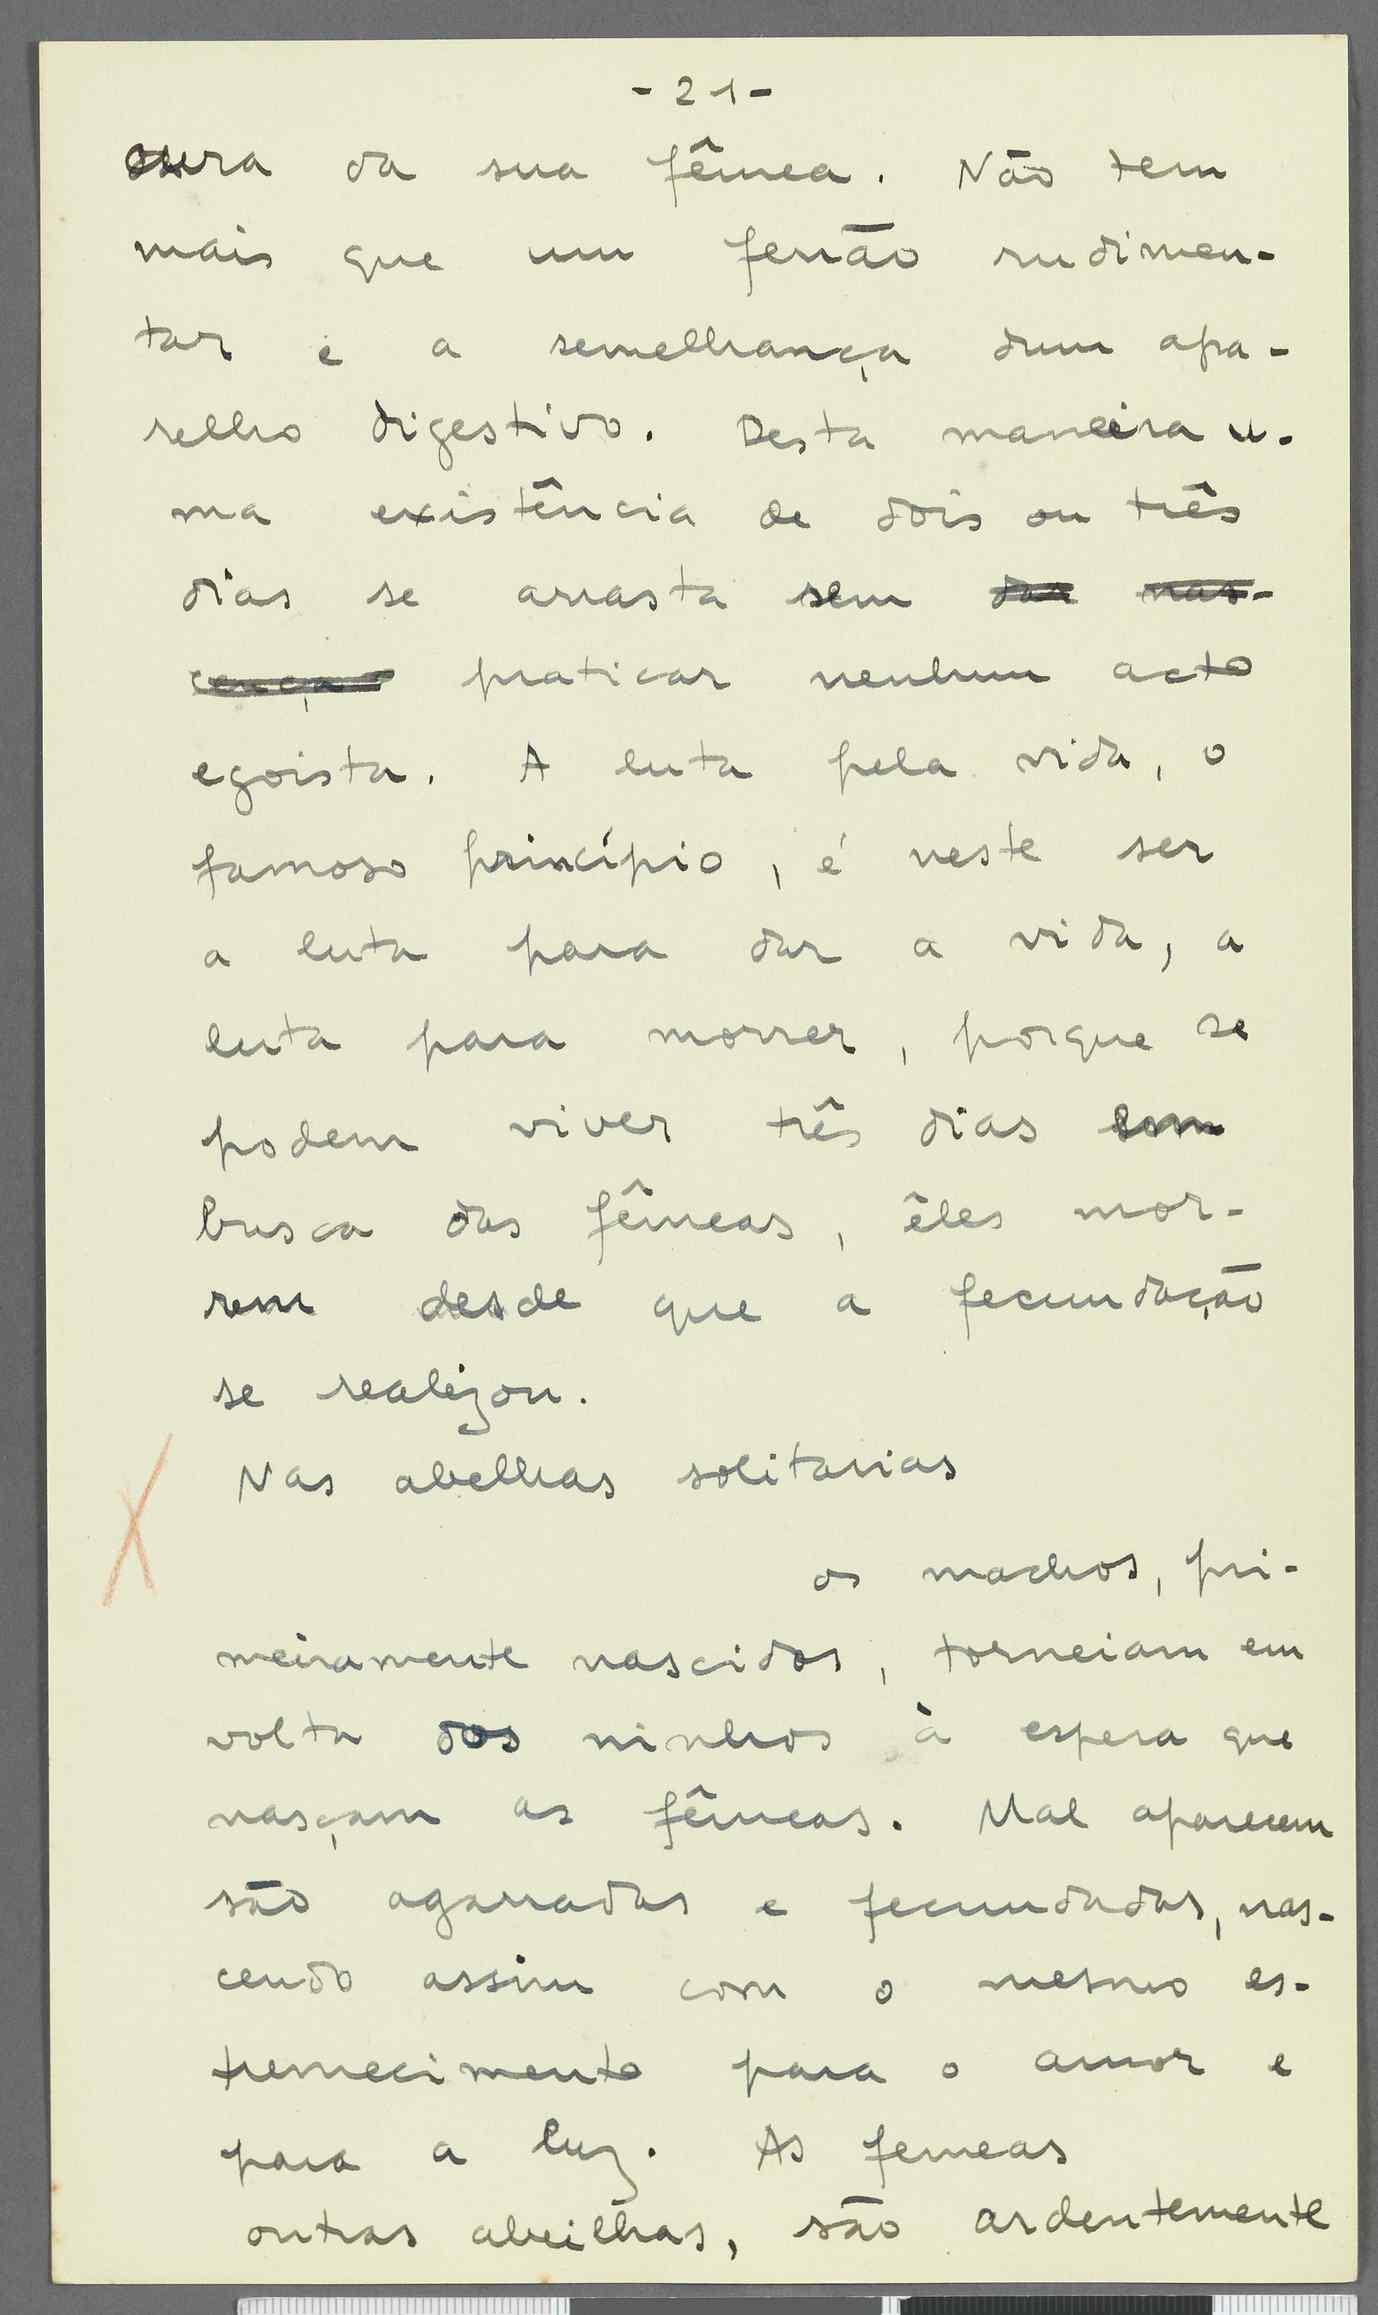 - 21 -
cura da sua fêmea. Não tem
mais que um ferrão rudimen-
tar e a semelhança dum apa-
relho digestivo. Desta maneira u-
ma existência de dois ou três
dias se arrasta sem dar nas-
cença praticar nenhum acto
egoista. A luta pela vida, o
famoso princípio, é neste ser
a luta para dar a vida, a
luta para morrer, porque se
podem viver três dias em
busca das fêmeas, êles mor-
rem desde que a fecundação
se realizou.
Nas abelhas solitarias
os machos, pri-
meiramente nascidos, torneiam em
volta dos ninhos à espera que
nasçam as fêmeas. Mal aparecem
são agarradas e fecundadas, nas-
cendo assim com o mesmo es-
tremecimento para o amor e
para a luz. As femeas
outras abeilhas, são ardentemente